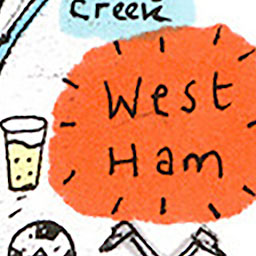 Creek
West
Ham